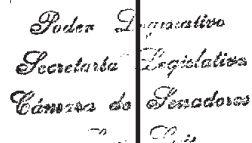 Poder Legislativo
Secretaría Legislativa
Cámara de Senadores